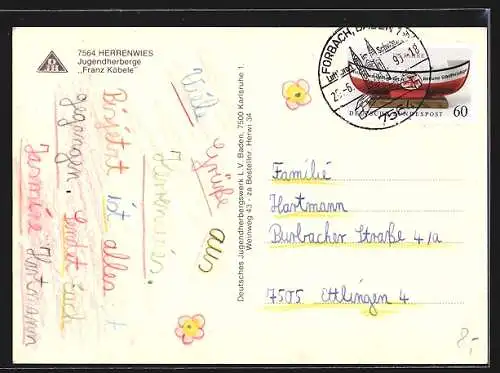 7564 HERRENWIES
Jugendherberge
„Franz Köbele"
Viele Grüße aus
Herrenwies.
Bis jetzt ist alles
gegangen.
Jasmine Hartmann
Deutsches Jugendherbergswerk L.V. Baden, 7500 Karlsruhe 1
Weinweg 43 · za Bestellnr. Herwi 34
FORBACH, BADEN 1
7564
DEUTSCHE BUNDESPOST
60
Familie
Hartmann
Burbacher Straße 4/a
7505 Ettlingen 4
8,-